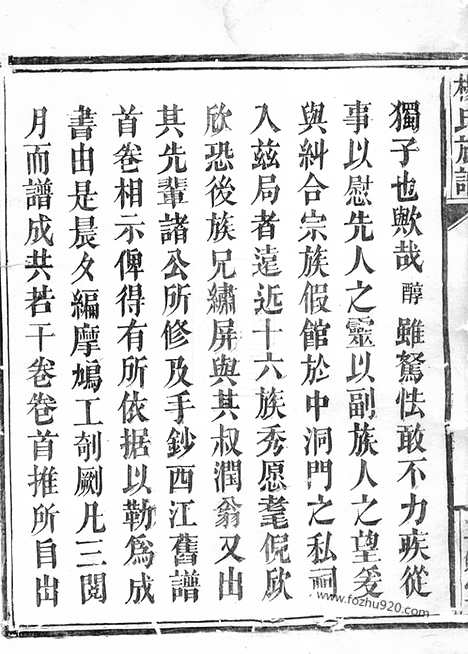 獨子也歟哉醇雖駑怯敢不力疾從
事以慰先人之靈以副族人之望爰
與糾合宗族假館於中洞門之私祠
入兹局者遠近十六族秀愿耄倪欣
欣恐後族兄繡屏與其叔潤翁又出
其先輩諸公所修及手鈔西江舊譜
首卷相示俾得有所依据以勒為成
書由是晨夕編摩鳩工剞劂凡三閱
月而譜成共若干卷卷首推所自出
www.fozhu920.com